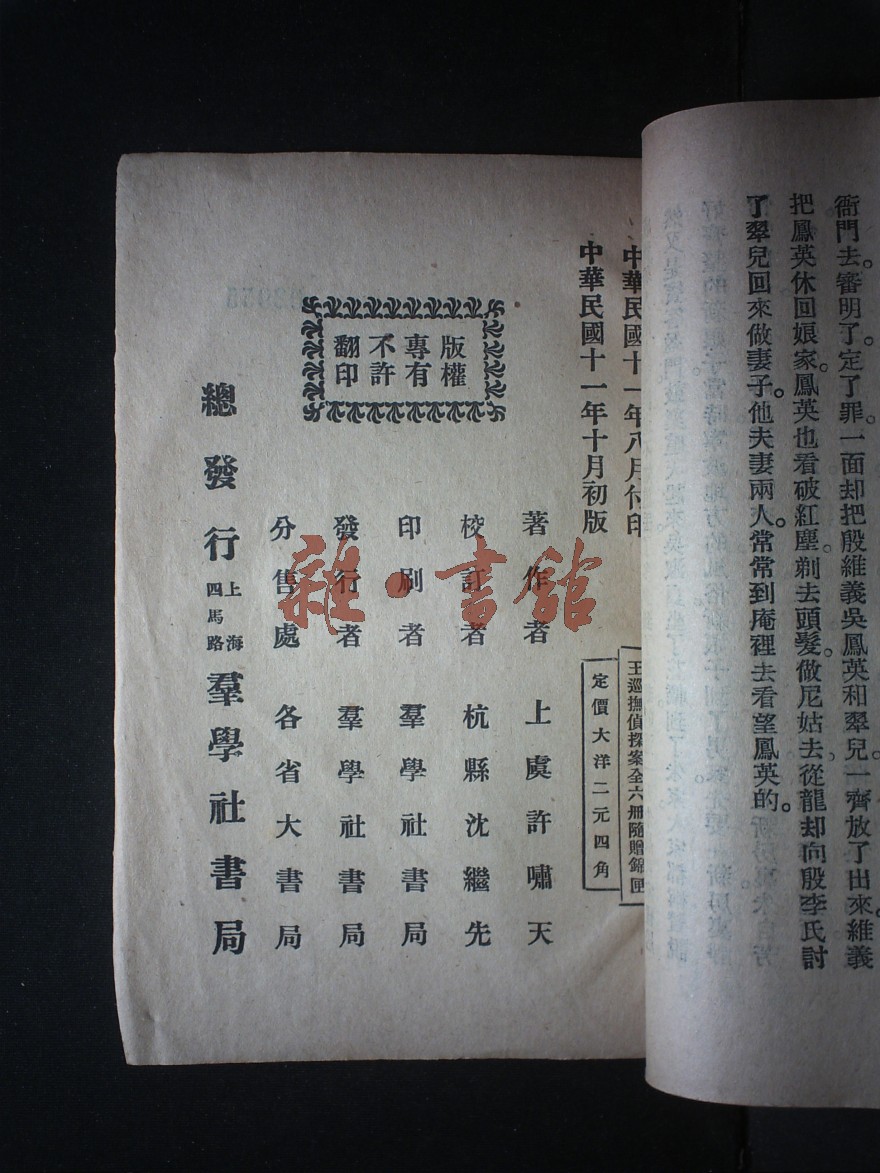 衙門去。審明了。定了罪一面却把殷維義吳鳳英和翠兒一齊放了出來。維義
把鳳英休回娘家。鳳英也看破紅塵。剃去頭髮。做尼姑去。從龍却向殷李氏討
了翠兒回來做妻子。他夫妻兩人。常常到庵裡去看望鳳英的。
中華民國十一年八月付印
中華民國十一年十月初版
王巡撫偵探案全六册隨贈錦匣
定價大洋二元四角
版權
專有
不許
翻印
著作者 上虞許嘯天
校訂者 杭縣沈繼先
印刷者 羣學社書局
發行者 羣學社書局
分售處 各省大書局
總發行 上海四馬路 羣學社書局
雜·書館